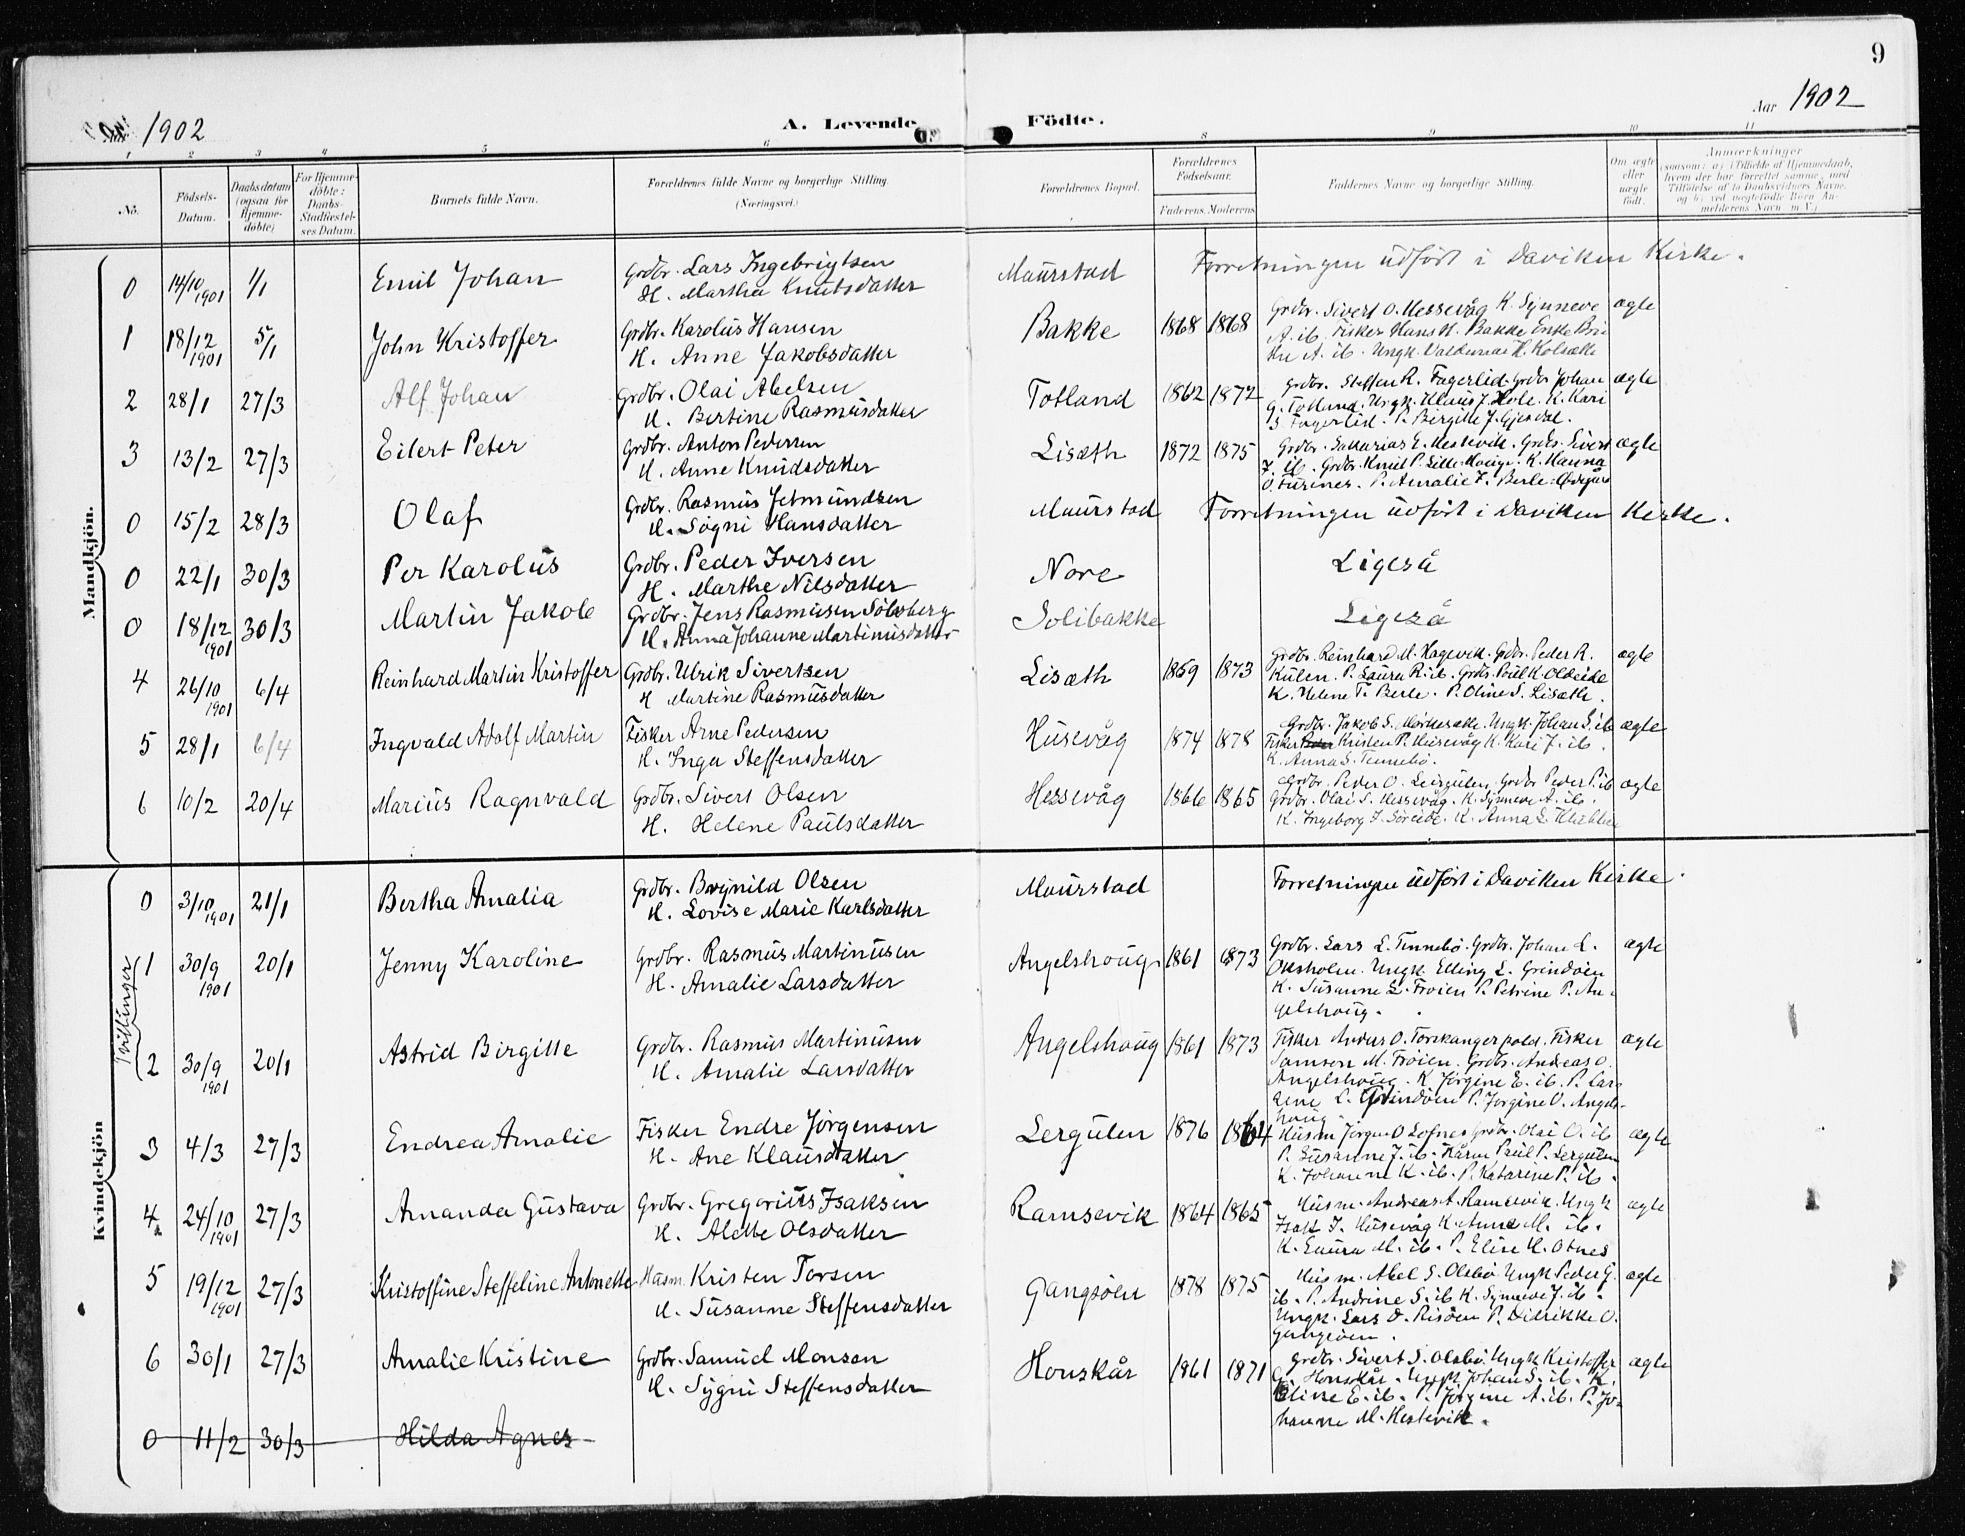 9
1902
A. Levende
Födte.
Aar 1902
1 2 3 4 5 6 8 9 10 11
No.
Födsels-Datum.
Daabsdatum (ogsaa for Hjemmedöbte)
For Hjemmedöbte: Daabs-Stadfæstelses Datum.
Barnets fulde Navn.
Forældrenes fulde Navne og borgerlige Stilling.
(Næringsvei.)
Forældrenes Bopæl.
Forældrenes Födselsaar.
Faderens. Moderens.
Faddernes Navne og borgerlige Stilling.
Om ægte eller uægte födt.
Anmærkninger
(saasom: a) i Tilfælde af Hjemmedaab, hvem der har forrettet samme, med Tilföielse af to Daabsvidners Navne, og b) ved uægtefödte Börn Anmelderens Navn m. V.)
Mandkjön.
0 14/10 1901 1/1 Emil Johan Grdbr. Lars Ingebrigtsen Maurstad Forretningen udført i Daviken Kirke.
H. Martha Knutsdatter
1 18/12 1901 5/1 John Kristoffer Grdbr. Karolus Hansen Bakke 1868 1868 Grdbr. Sivert O. Hessevåg K. Synneve ægte
H. Anne Jakobsdatter A. ib. Fisker Hans H. Bakke Enke Bri-
te A. ib. Ungk. Valdemar H. Kolsæth
2 28/1 27/3 Alf Johan Grdbr. Olai Abelsen Totland 1862 1872 Grdbr. Steffen R. Fagerlid. Grdbr Johan ægte
H. Bertine Rasmusdatter G. Totland. Ungk. Klaus J. Hole. K. Kari
S. Fagerlid. P. Birgitte J. Gjesdal.
3 13/2 27/3 Eilert Peter Grdbr. Anton Pedersen Lisæth 1872 1875 Grdbr. Sakarias E. Hestevik. Grdbr. Sivert ægte
H. Anne Knudsdatter J. ib. Grdbr. Knut P. Lille-Hauge. K. Hanna
O. Furenes. P. Amalie J. Berle
0 15/2 28/3 Olaf Grdbr. Rasmus Jetmundsen Maurstad Forretningen udført i Daviken Kirke.
H. Søgni Hansdatter
0 22/1 30/3 Per Karolus Grdbr. Peder Iversen Nore Ligeså
H. Marthe Nilsdatter
0 18/12 1901 30/3 Martin Jakob Grdbr. Jens Rasmusen Sölvberg Solibakke Ligeså
H. Anna Johanne Martinusdatter
4 26/10 1901 6/4 Reinhard Martin Kristoffer Grdbr. Ulrik Sivertsen Lisæth 1869 1873 Grdbr. Reinhard M. Hagevik. Grdbr. Peder R. ægte
H Martine Rasmusdatter Kulen. P. Laura R. ib. Grdbr. Poul K Oldeide
K. Helene T. Berle. P. Oline S. Lisæth.
5 28/1 6/4 Ingvald Adolf Martin Fisker Arne Pedersen Husevåg 1874 1878 Grdbr. Jakob S. Mørkesæth. Ungk. Johan S. ib ægte
H. Inga Steffensdatter Fisker Kristen P. Husevåg K. Kari J. ib.
K. Anna S. Tennebö.
6 10/2 20/4 Marius Ragnvald Grdbr. Sivert Olsen Hessevåg 1866 1865 Grdbr. Peder O. Leirgulen. Grdbr Peder P. ib ægte
H. Helene Paulsdatter Grdbr. Olai S. Hessevåg. K. Synneve A. ib.
K. Ingeborg J. Søreide. K. Anna L.
Kvindekjön
0 3/10 1901 21/1 Bertha Amalia Grdbr. Brynild Olsen Maurstad Forretningen udført i Daviken Kirke.
H. Lovise Marie Karlsdatter
Tvillinger
1 30/9 1901 20/1 Jenny Karoline Grdbr. Rasmus Martinusen Angelshoug 1861 1873 Grdbr. Lars L. Tennebö. Grdbr. Johan L. ægte
H. Amalie Larsdatter Oksholm. Ungk. Elling L. Grindöen
K. Susanne L. Fröien P. Petrine P. An-
gelshoug.
2 30/9 1901 20/1 Astrid Birgitte Grdbr. Rasmus Martinusen Angelshoug 1861 1873 Fisker Anders O. Torskangerpold. Fisker ægte
H. Amalie Larsdatter Samson M. Fröien. Grdbr. Andreas O.
Angelshoug. K Jörgine E. ib. P. Lar-
sine L. Grindöen P. Jorgine O. Angels-
houg.
3 4/3 27/3 Endrea Amalie Fisker Endre Jörgensen Lergulen 1876 1864 Husm Jörgen O Lofnes Grdbr. Olai O. ib ægte
H. Ane Klausdatter P. Susanne J. ib. Kårm Paul P. Lergulen
K. Johanne K. ib. P. Katarine P. ib.
4 24/10 1901 27/3 Amanda Gustava Grdbr. Gregorius Isaksen Ramsevik 1864 1865 Husm. Andreas A. Ramsevik. Ungk ægte
H. Alette Olsdatter Isak J. Husevåg K. Anne M. ib.
K. Laura M. ib. P. Elise H. Otnes
5 19/12 1901 27/3 Kristoffine Steffeline Antonette Husm. Kristen Torsen Gangsöen 1878 1875 Husm. Abel S. Olsbö. Ungk Peder G. ægte
H. Susanne Steffensdatter ib. P. Andrine S. ib K. Synneve J. ib.
Ungk. Lars O. Risöen P. Didrikke O.
Gangsöen.
6 30/1 27/3 Amalie Kristine Grdbr. Samuel Monsen Honskår 1861 1871 Grdbr. Sivert S. Olsbö. Ungk Kristoffer ægte
H. Sygni Steffensdatter G. Honskår. Ungk Johan S. ib. K.
Eline E. ib. P. Jörgine A. ib. P. Jo-
hanne M. Hestevik.
0 11/2 30/3 Hilda Agnes